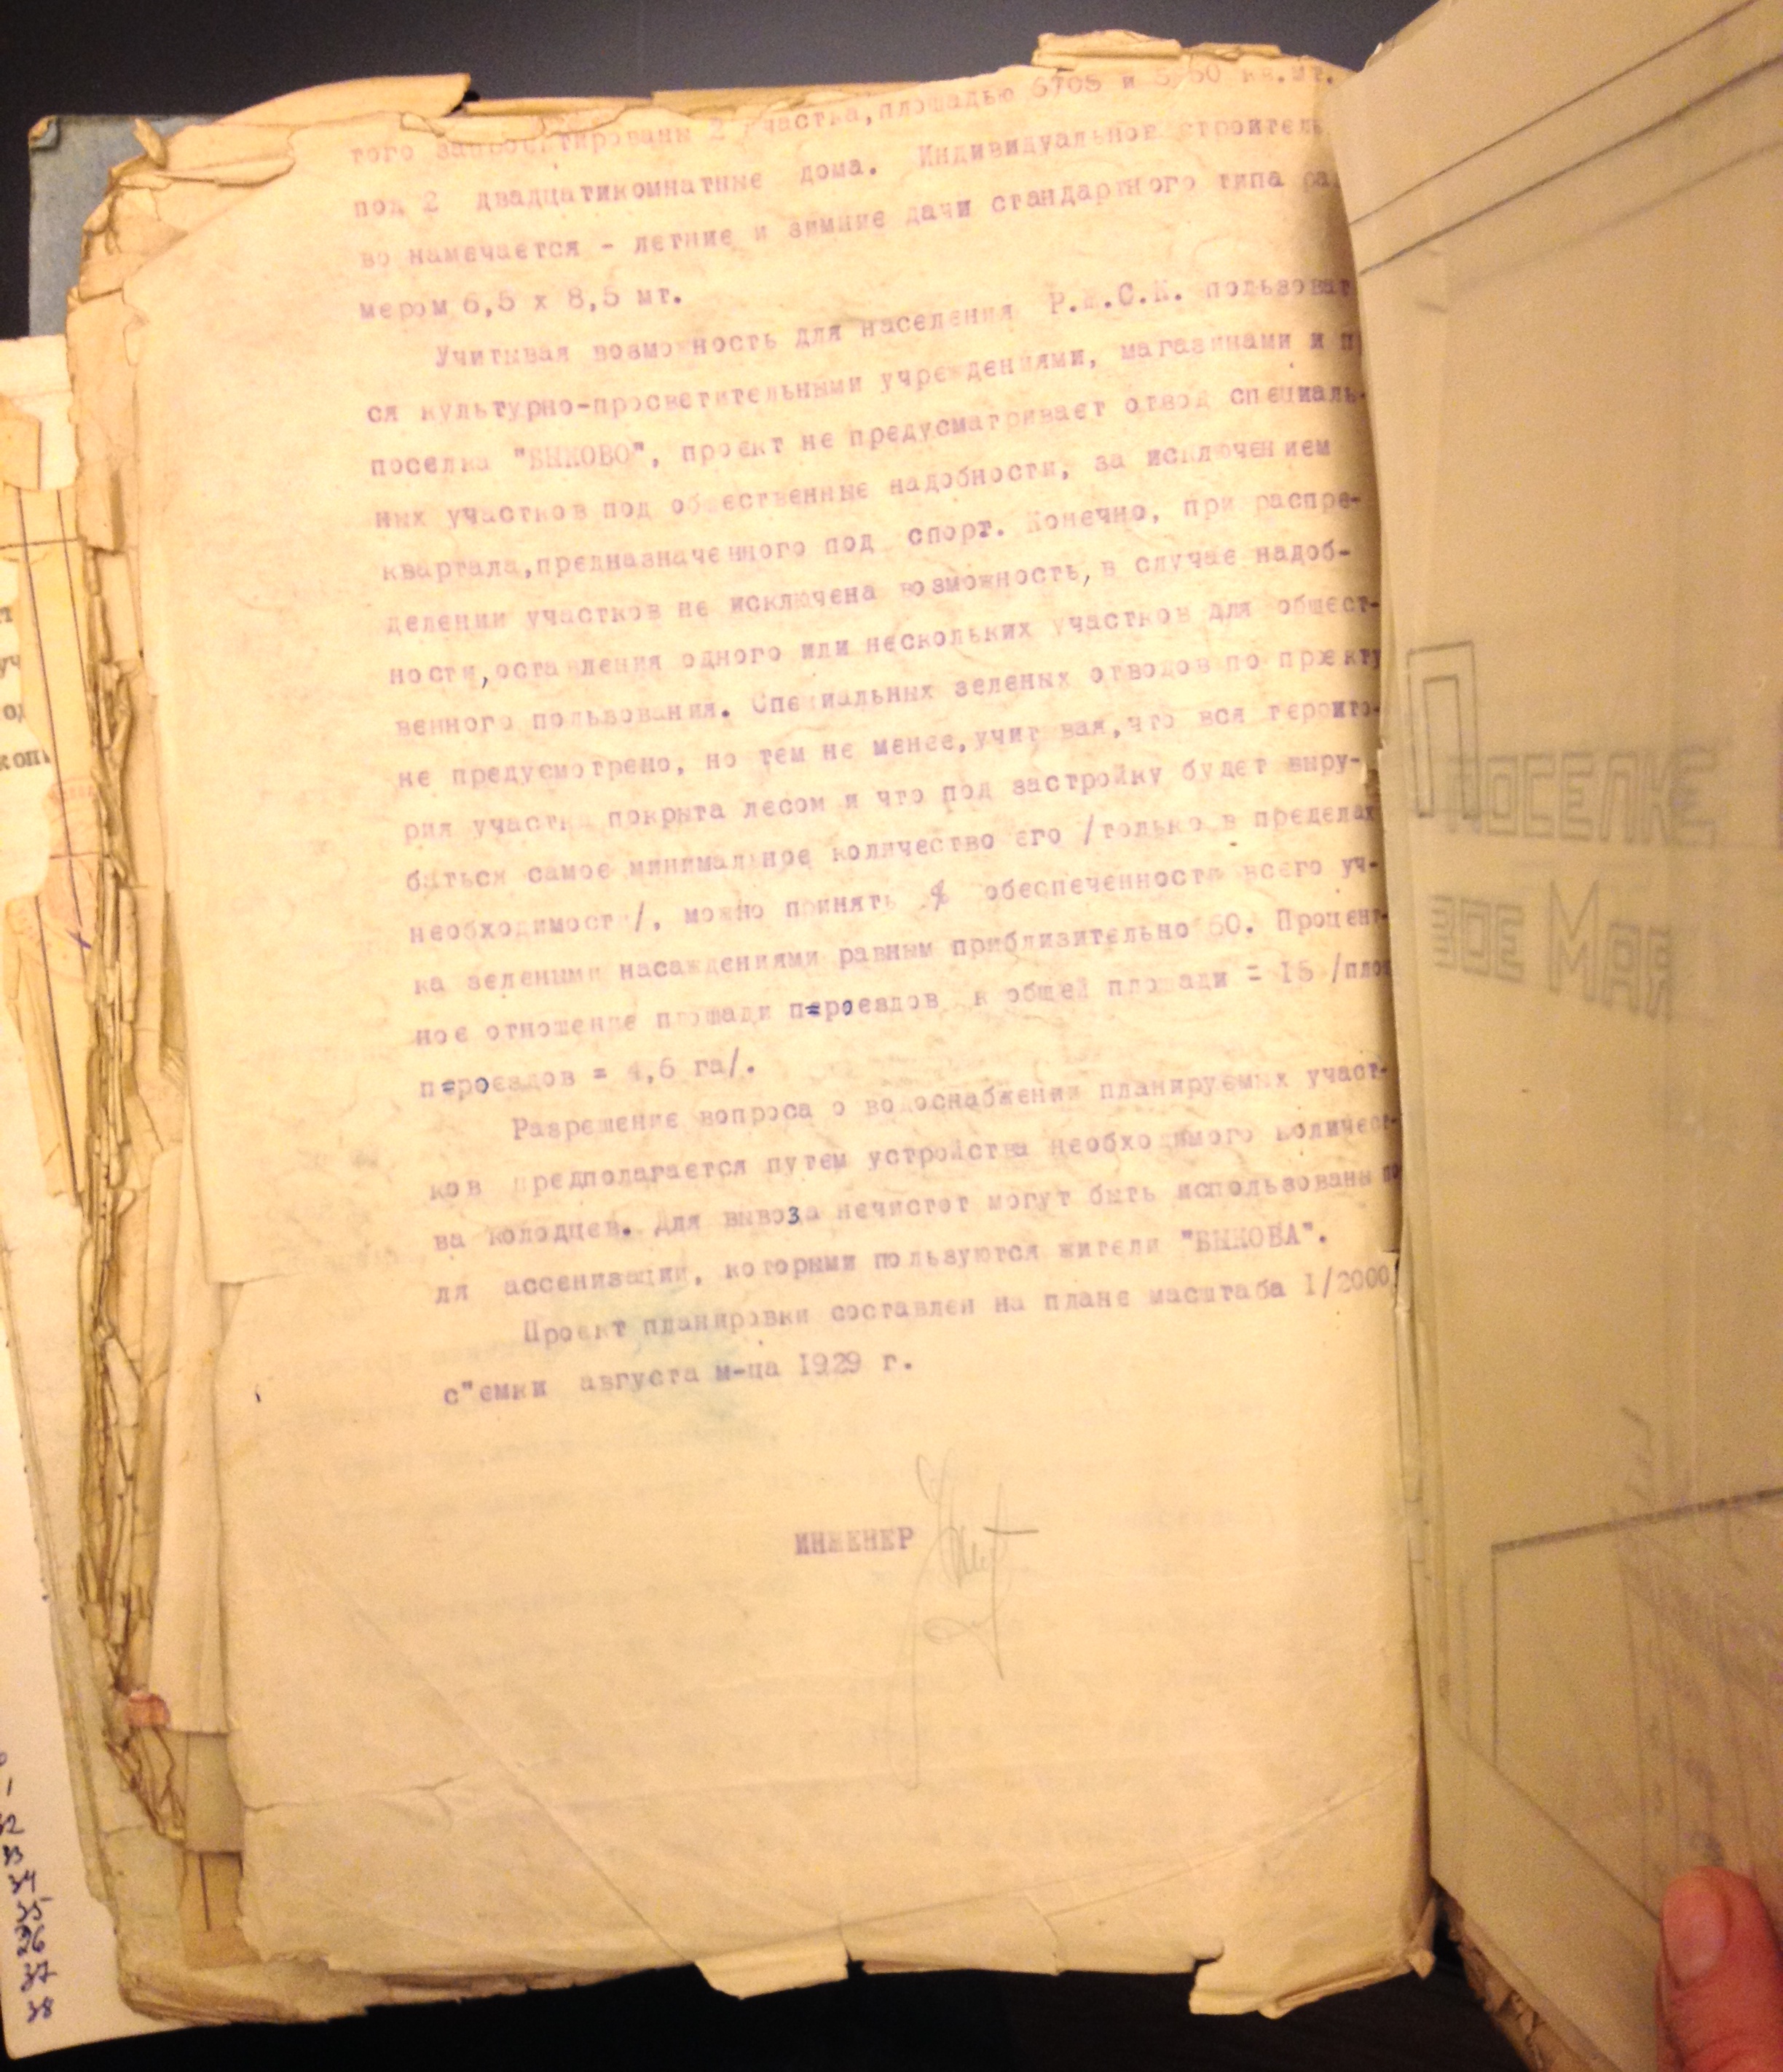 того запроектированы 2 участка, площадью 6705 и 5 50 кв.мт.
под 2 двадцатикомнатные дома. Индивидуальное строитель
во намечается - летние и зимние дачи стандартного типа ра
мером 6,5 х 8,5 мт.
Учитывая возможность для населения Р.Ж.С.К. пользоват
ся культурно-просветительными учреждениями, магазинами и п
поселка "БЫКОВО", проект не предусматривает отвод специаль-
ных участков под общественные надобности, за исключением
квартала,предназначенного под спорт. Конечно, при распре-
делении участков не исключена возможность,в случае надоб-
ности,оставления одного или нескольких участков для общест-
венного пользования. Специальных зеленых отводов по проекту
не предусмотрено, но тем не менее,учитывая,что вся терпито-
рия участка покрыта лесом и что под застройку будет выру-
баться самое минимальное количество его /только в пределах
необходимости/, можно принять % обеспеченности всего уч-
ка зелеными насаждениями равным приблизительно 60. Процент-
ное отношение площади проездов к общей площади = 15 /пло
проездов = 4,6 га/.
Разрешение вопроса о водоснабжении планируемых участ-
ков предполагается путем устройства необходимого количест-
ва колодцев. Для вывоза нечистот могут быть использованы по
ля ассенизации, которыми пользуются жители "БЫКОВА".
Проект планировки составлен на плане масштаба 1/2000,
с"емки августа м-ца 1929 г.
ИНЖЕНЕР
ПОСЕЛКЕ
ВОЕ МАЯ
32
33
34
35
36
37
38